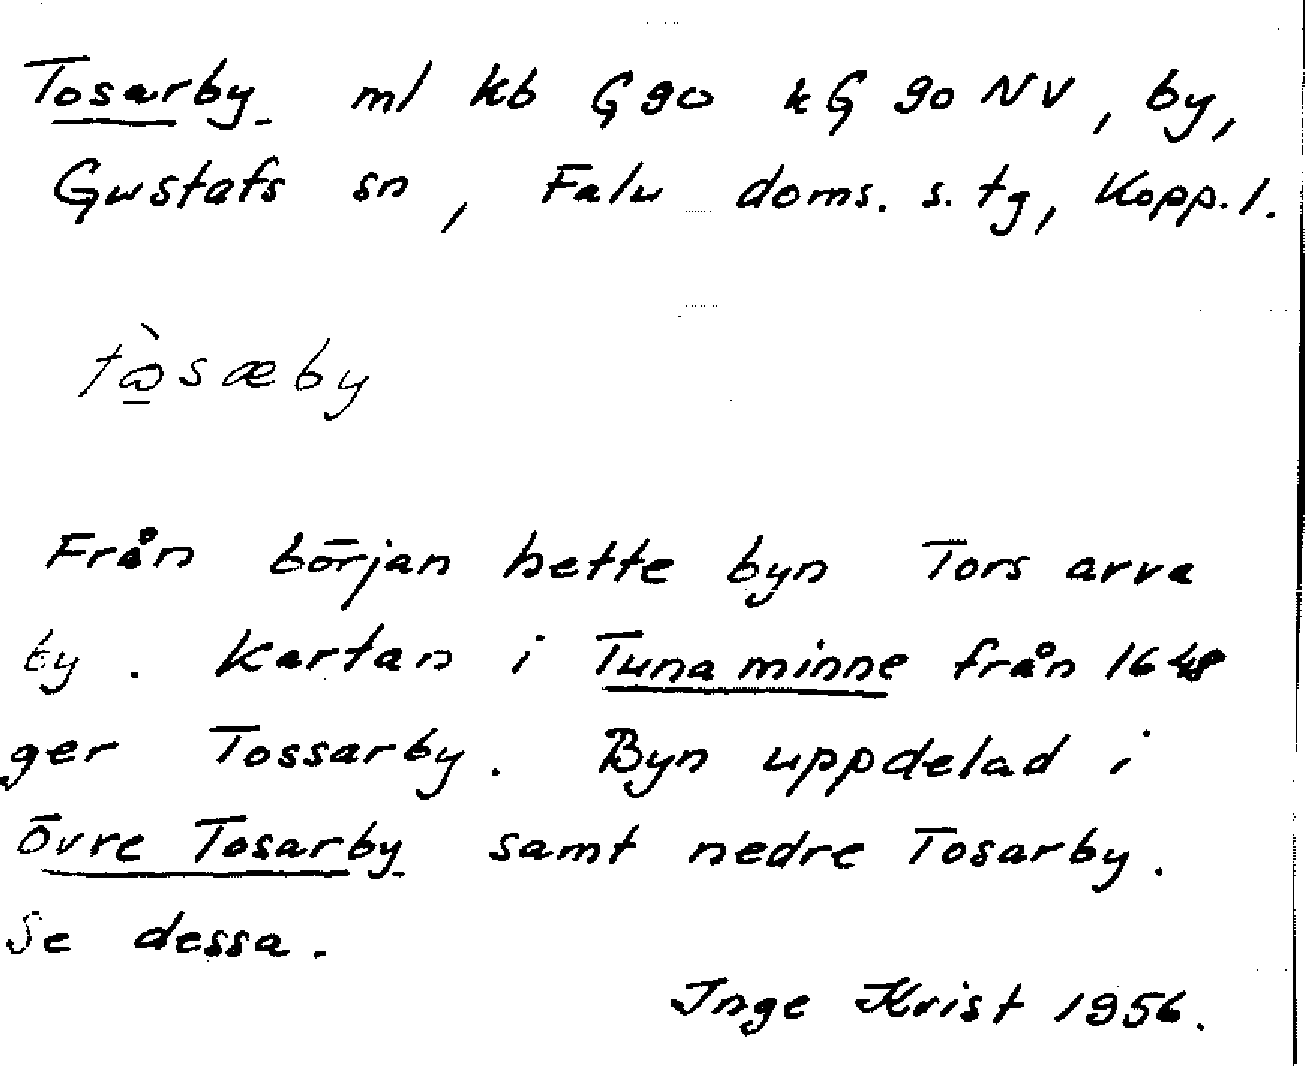 Tosarby ml kb G 90 kG 90 NV, by,
Gustafs sn, Falu doms. s. tg, Kopp. l.
tòsæby
Från början hette byn Tors arva
by. Kartan i Tuna minne från 1648
ger Tossarby. Byn uppdelad i
övre Tosarby samt nedre Tosarby.
Se dessa.
Inge Krist 1956.